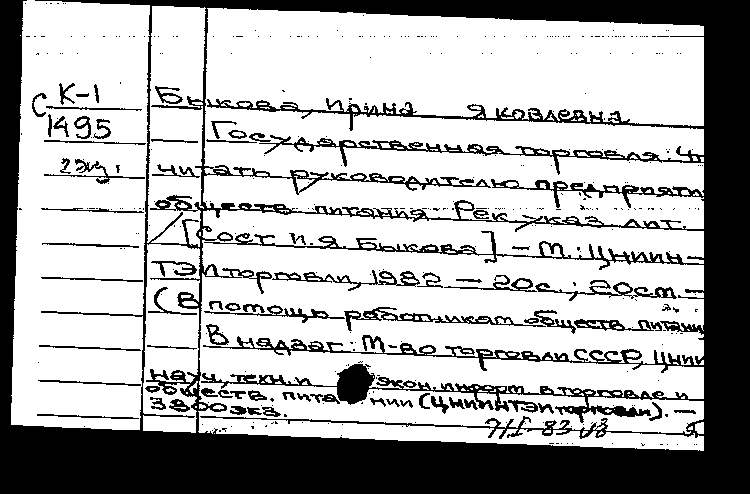 С К-1
1495
2 экз.
Быкова, Ирина Яковлевна
Государственная торговля: Чт
читать руководителю предприяти
обществ питания Рек указ лит.
/ [Сост. И.Я. Быкова] – М.: ЦНИИН–
ТЭИторговли, 1982 – 20с.; 20см. –
(В помощь работникам обществ. питания
В надзаг: М-во торговли СССР, ЦНИИ
науч., техн. и экон. информ. в торговле и
обществ. питании (ЦНИИНТЭИторговли). –
3800 экз.